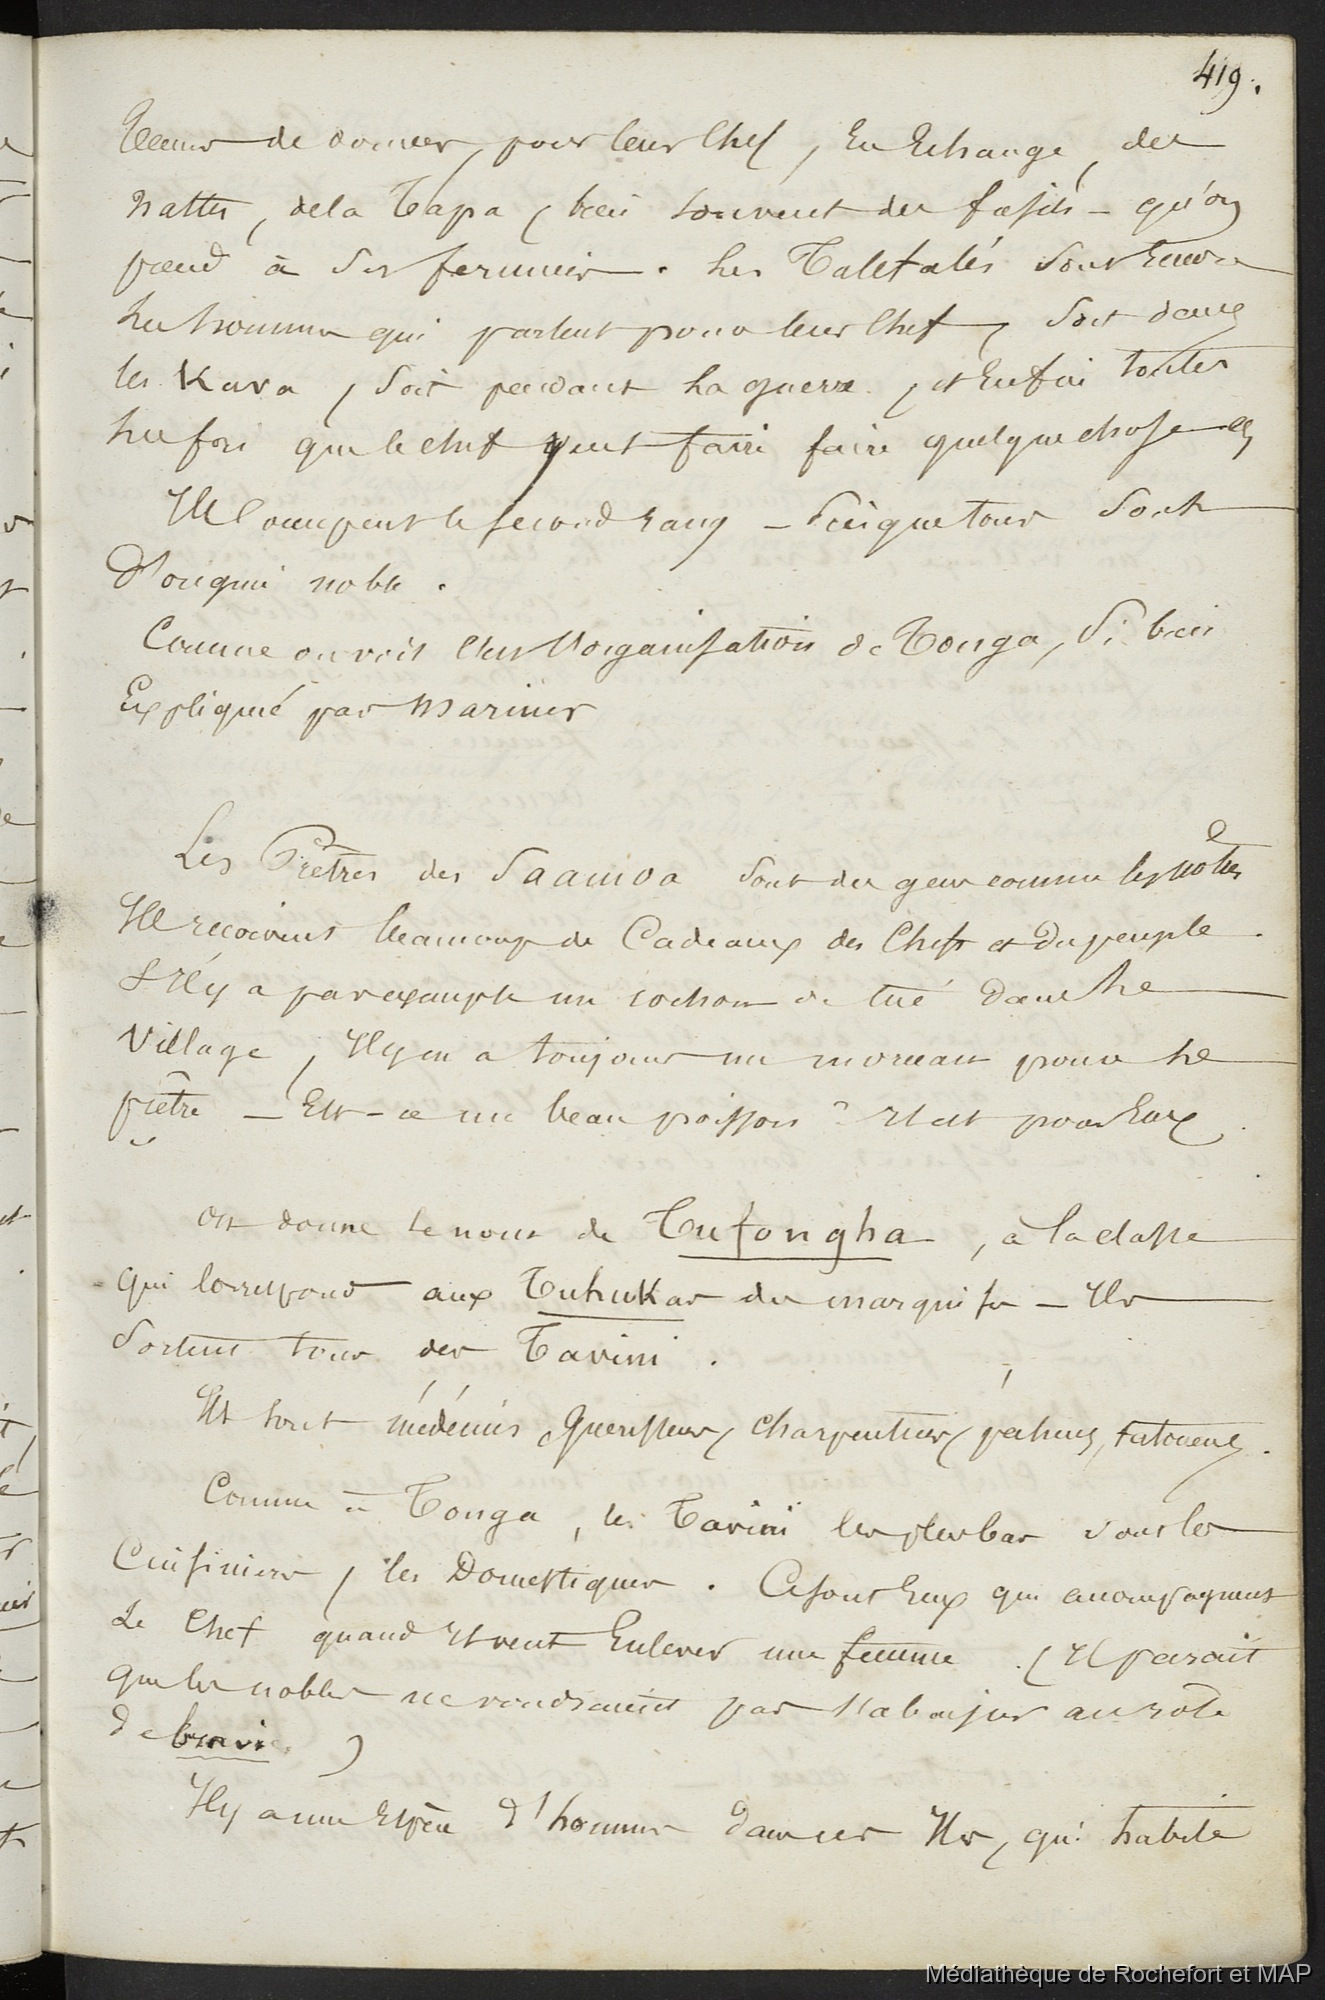 419.
de donner, pour leur chef, en Echange, des
nattes, de la Tapa, bien souvent des fusils - qu'on
prend à ses fermiers. Les Taletalés sont encore
les hommes qui parlent pour leur chef, soit dans
les Kava, soit pendant la guerre, et enfin toutes
les fois que le chef veut faire faire quelque chose
Ils occupent le second rang - puisque tous sont
d'origine noble.
Comme on voit c'est l'organisation de Tonga, si bien
Expliquée par Mariner
Les Prêtres des Saamoa sont des gens comme les nôtres
Ils reçoivent beaucoup de Cadeaux des Chefs et du peuple.
S'Il y a par exemple un cochon de tué dans le
Village, Il y en a toujours un morceau pour le
prêtre - Est-ce un beau poisson? Il est pour Eux.
On donne le nom de Tufongha, à la classe
qui correspond aux Tuhukas des marquises - Ils
sortent tous des Tavini.
Ils sont médecins Guerisseurs, Charpentiers, pêcheurs, tatoueurs.
Comme à Tonga, les Tavini les plus bas sont les
Cuisiniers, les Domestiques. Ce sont Eux qui accompagnent
Le Chef quand Il veut Enlever une femme. (Il parait
que les nobles ne voudraient pas s'abaisser au rôle
de )
Il y a une Espèce d'hommes dans ces Iles, qui habite
Médiathèque de Rochefort et MAP